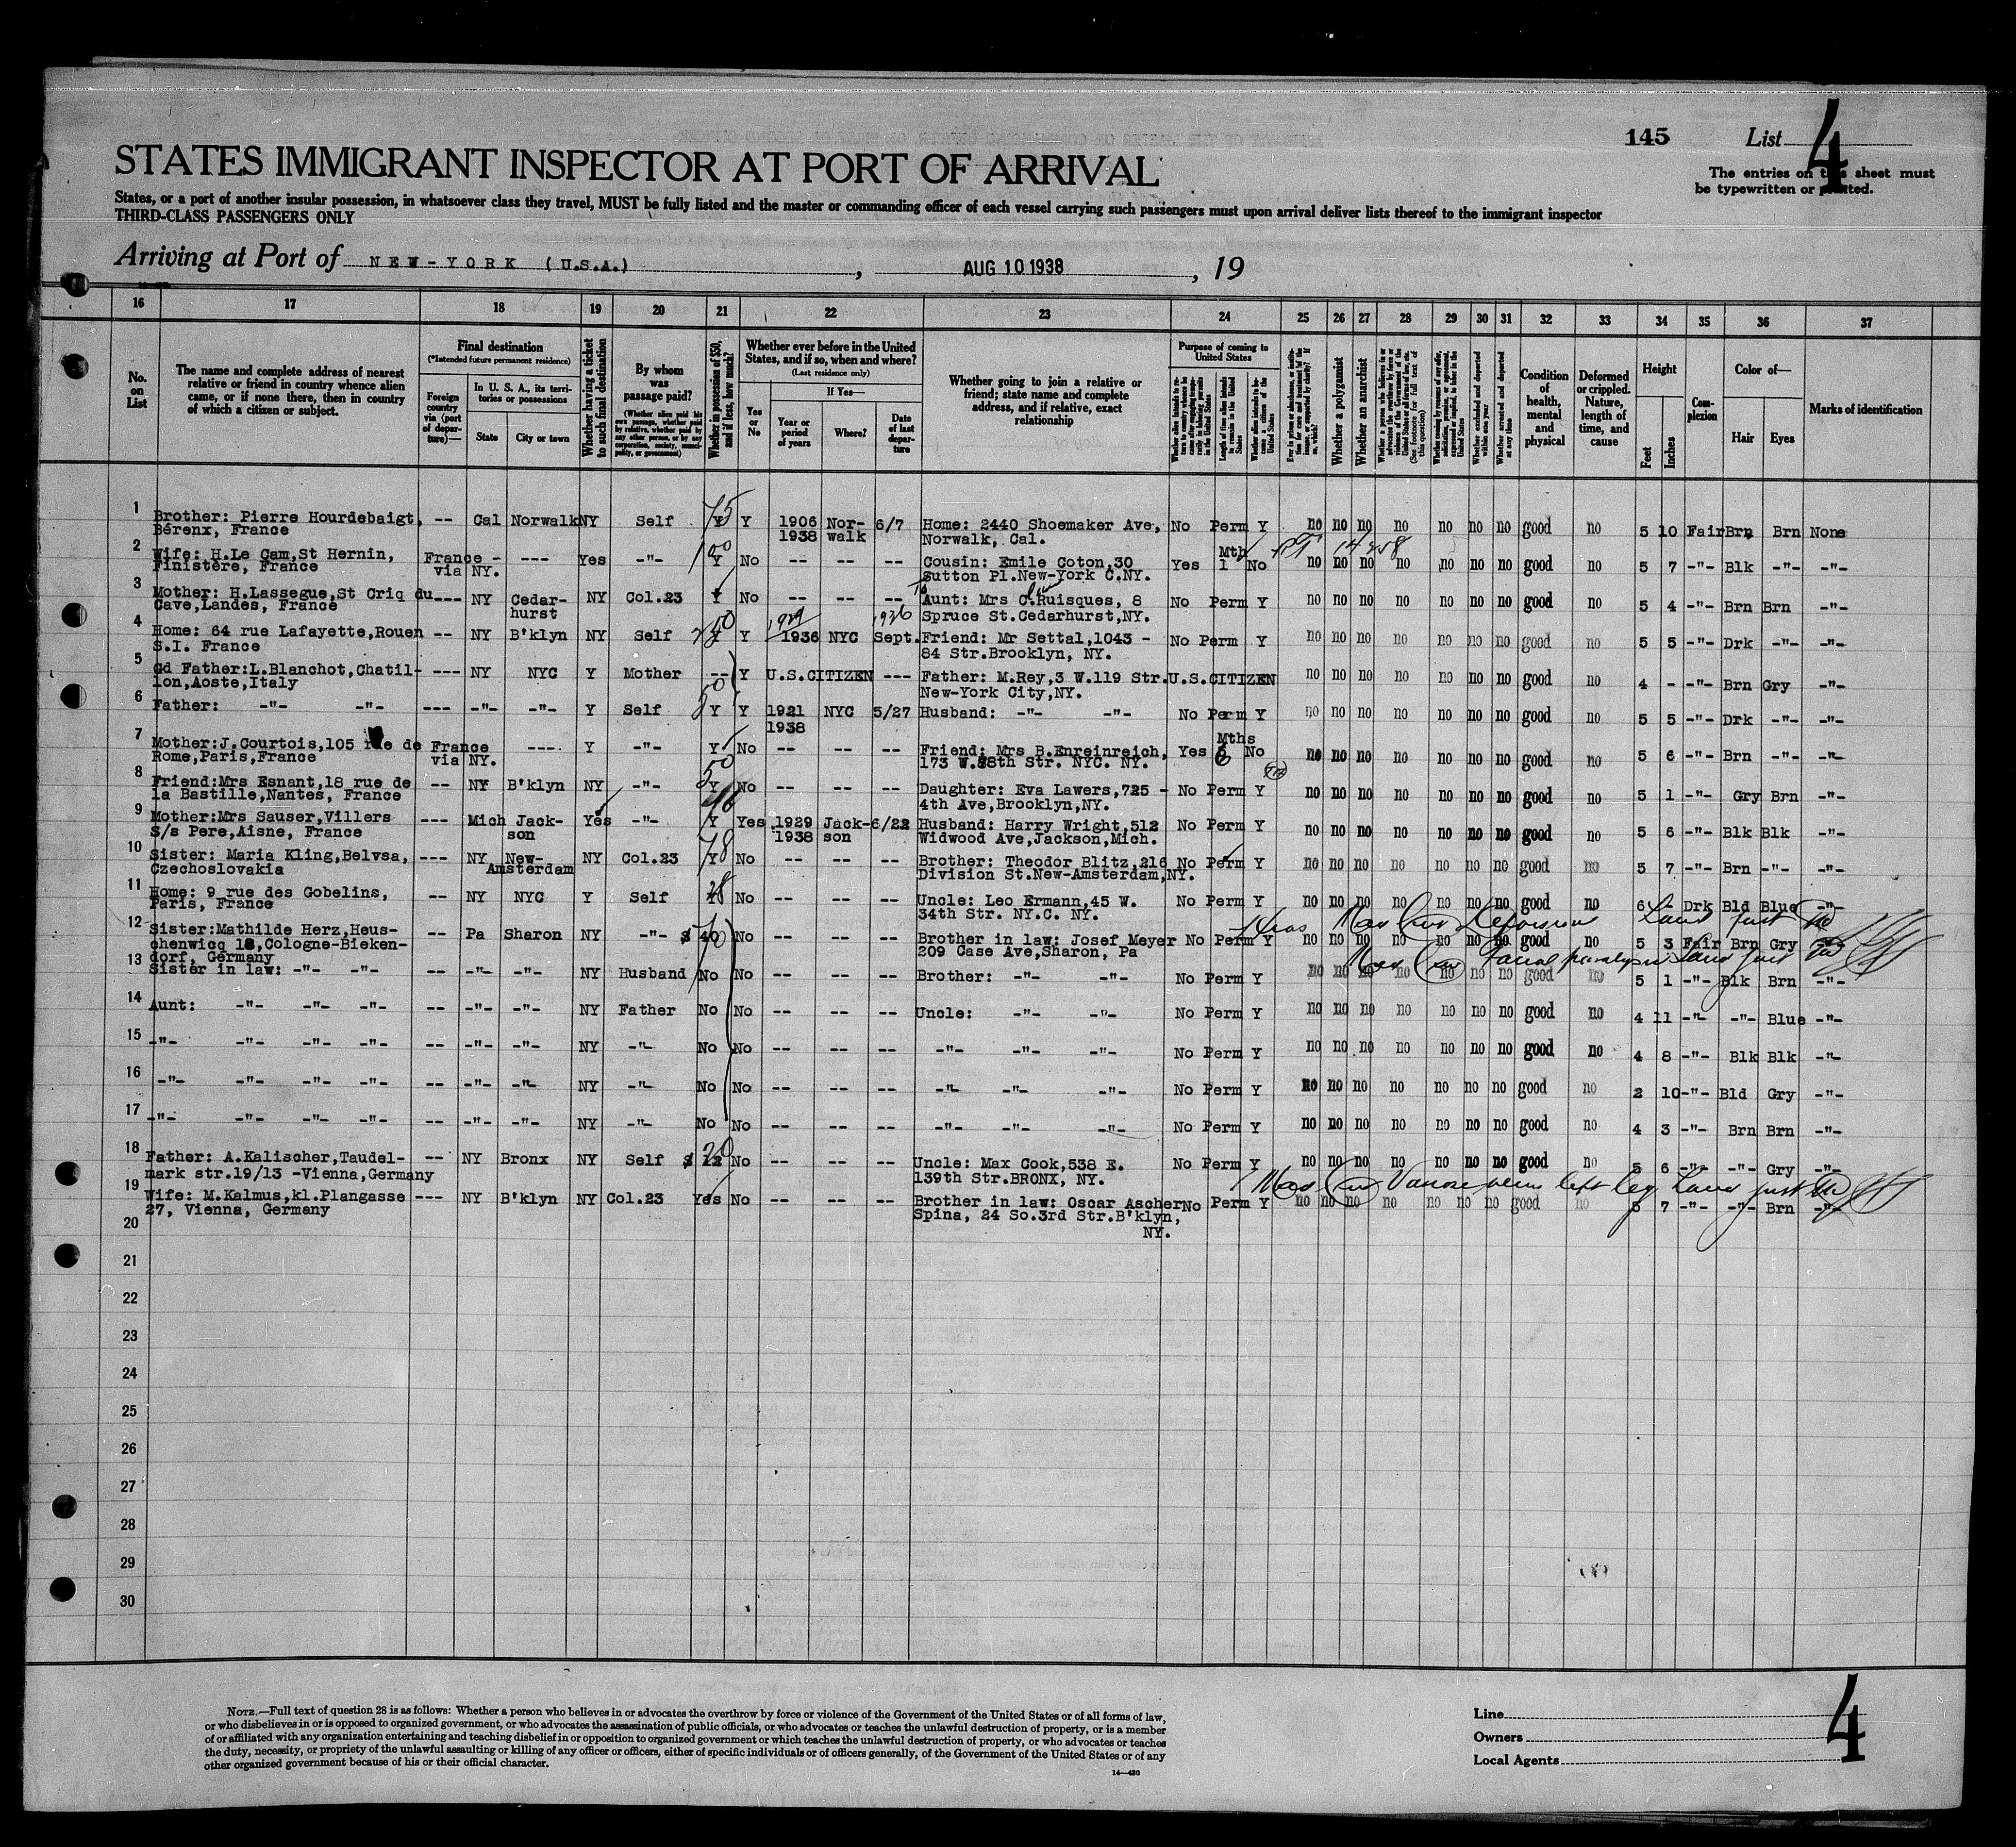 145 List 4
STATES IMMIGRANT INSPECTOR AT PORT OF ARRIVAL
The entries on this sheet must
be typewritten or printed.
States, or a port of another insular possession, in whatsoever class they travel, MUST be fully listed and the master or commanding officer of each vessel carrying such passengers must upon arrival deliver lists thereof to the immigrant inspector
THIRD-CLASS PASSENGERS ONLY
Arriving at Port of NEW-YORK (U.S.A.), AUG 10 1938, 19
16 17 18 19 20 21 22 23 24 25 26 27 28 29 30 31 32 33 34 35 36 37
No. on List
The name and complete address of nearest relative or friend in country whence alien came, or if none there, then in country of which a citizen or subject.
Final destination
(*Intended future permanent residence)
Foreign country via (port of departure)—
In U. S. A., its territories or possessions
State City or town
Whether having a ticket to such final destination
By whom was passage paid?
(Whether alien paid his own passage, whether paid by relative, whether paid by any other person, or by any corporation, society, municipality, or government)
Whether in possession of $50, and if less, how much?
Whether ever before in the United States, and if so, when and where?
(Last residence only)
Yes or No
If Yes—
Year or period of years Where? Date of last departure
Whether going to join a relative or friend; state name and complete address, and if relative, exact relationship
Purpose of coming to United States
Length of time alien intends to remain in the United States
Whether alien intends to become a citizen of the United States
Whether a polygamist
Whether an anarchist
(See footnote for full text of this question)
Whether excluded and deported within one year
Whether arrested and deported at any time
Condition of health, mental and physical
Deformed or crippled. Nature, length of time, and cause
Height
Feet Inches
Complexion
Color of—
Hair Eyes
Marks of identification
1 Brother: Pierre Hourdebaigt, -- Cal Norwalk NY Self 75 Y Y 1906 Nor- 6/7 Home: 2440 Shoemaker Ave, No Perm Y no no no no no no no good no 5 10 Fair Brn Brn None
Bérenx, France 1938 walk Norwalk, Cal.
2 Wife: H.Le Cam,St Hernin, France - --- Yes -"- 100 Y No -- -- -- Cousin: Emile Coton,30 Yes 1 Mth No no no no no no no no good no 5 7 -"- Blk -"- -"-
Finistère, France via NY. Sutton Pl.New-York C.NY.
3 Mother: H.Lassegue,St Criq du --- NY Cedar- NY Col.23 Y No -- -- -- Aunt: Mrs C.Ruisques, 8 No Perm Y no no no no no no no good no 5 4 -"- Brn Brn -"-
Cave,Landes, France hurst Spruce St.Cedarhurst,NY.
4 Home: 64 rue Lafayette,Rouen -- NY B'klyn NY Self Y Y 1936 NYC Sept. 1936 Friend: Mr Settal,1043 - No Perm Y no no no no no no no good no 5 5 -"- Drk -"- -"-
S.I. France 84 Str.Brooklyn, NY.
5 Gd Father:L.Blanchot,Chatil- --- NY NYC Y Mother -- Y U.S.CITIZEN --- Father: M.Rey,3 W.119 Str. U.S.CITIZEN no no no no no no no good no 4 - -"- Brn Gry -"-
lon,Aoste,Italy New-York City,NY.
6 Father: -"- -"- --- -"- -"- Y Self 50 Y Y 1921 NYC 5/27 Husband: -"- -"- No Perm Y no no no no no no no good no 5 5 -"- Drk -"- -"-
1938
7 Mother:J.Courtois,105 rue de France ---- Y -"- Y No -- -- -- Friend: Mrs B.Enreinreich, Yes 6 Mths No no no no no no no no good no 5 6 -"- Brn -"- -"-
Rome,Paris,France via NY. 173 W.88th Str. NYC. NY.
8 Friend:Mrs Esnant,18 rue de -- NY B'klyn NY -"- 50 Y No -- -- -- Daughter: Eva Lawers,725 - No Perm Y no no no no no no no good no 5 1 -"- Gry Brn -"-
la Bastille,Nantes, France 4th Ave,Brooklyn,NY.
9 Mother:Mrs Sauser,Villers --- Mich Jack- Yes -"- Y Yes 1929 Jack- 6/22 Husband: Harry Wright,512 No Perm Y no no no no no no no good no 5 6 -"- Blk Blk -"-
S/s Pere,Aisne, France son 1938 son Widwood Ave,Jackson,Mich.
10 Sister: Maria Kling,Belvsa, --- NY New- NY Col.23 78 Y No -- -- -- Brother: Theodor Blitz,216 No Perm Y no no no no no no no good no 5 7 -"- Brn -"- -"-
Czechoslovakia Amsterdam Division St.New-Amsterdam,NY.
11 Home: 9 rue des Gobelins, -- NY NYC Y Self No -- -- -- Uncle: Leo Ermann,45 W. No Perm Y no no no no no no no good no 6 - Drk Bld Blue -"-
Paris, France 34th Str. NY.C. NY.
12 Sister:Mathilde Herz,Heus- -- Pa Sharon NY -"- $ 40 No -- -- -- Brother in law: Josef Meyer No Perm Y no no no no no no no good no 5 3 Fair Brn Gry -"-
chenwicg 18,Cologne-Bieken- 209 Case Ave,Sharon, Pa
dorf, Germany
facial paralysis Land just
13 Sister in law: -"- -"- -- -"- -"- NY Husband No No -- -- -- Brother: -"- -"- No Perm Y no no no no no no no good no 5 1 -"- Blk Brn -"-
14 Aunt: -"- -"- -"- -- -"- -"- NY Father No No -- -- -- Uncle: -"- -"- No Perm Y no no no no no no no good no 4 11 -"- -"- Blue -"-
15 -"- -"- -"- -"- -- -"- -"- NY -"- No No -- -- -- -"- -"- -"- No Perm Y no no no no no no no good no 4 8 -"- Blk Blk -"-
16 -"- -"- -"- -"- -- -"- -"- NY -"- No No -- -- -- -"- -"- -"- No Perm Y no no no no no no no good no 2 10 -"- Bld Gry -"-
17 -"- -"- -"- -"- -- -"- -"- NY -"- No No -- -- -- -"- -"- -"- No Perm Y no no no no no no no good no 4 3 -"- Brn Brn -"-
18 Father: A.Kalischer,Taudel- -- NY Bronx NY Self $ 12 20 No -- -- -- Uncle: Max Cook,538 E. No Perm Y no no no no no no no good no 5 6 -"- -"- Gry -"-
mark str.19/13 -Vienna,Germany 139th Str.BRONX, NY.
veins left leg Land just
19 Wife: M.Kalmus,kl.Plangasse --- NY B'klyn NY Col.23 Yes No -- -- -- Brother in law: Oscar Ascher No Perm Y no no no no no no no good no 5 7 -"- -"- Brn -"-
27, Vienna, Germany Spina, 24 So.3rd Str.B'klyn,
20 NY.
21
22
23
24
25
26
27
28
29
30
NOTE.—Full text of question 28 is as follows: Whether a person who believes in or advocates the overthrow by force or violence of the Government of the United States or of all forms of law,
or who disbelieves in or is opposed to organized government, or who advocates the assassination of public officials, or who advocates or teaches the unlawful destruction of property, or is a member
of or affiliated with any organization entertaining and teaching disbelief in or opposition to organized government or which teaches the unlawful destruction of property, or who advocates or teaches
the duty, necessity, or propriety of the unlawful assaulting or killing of any officer or officers, either of specific individuals or of officers generally, of the Government of the United States or of any
other organized government because of his or their official character.
14—430
Line
Owners
Local Agents
4